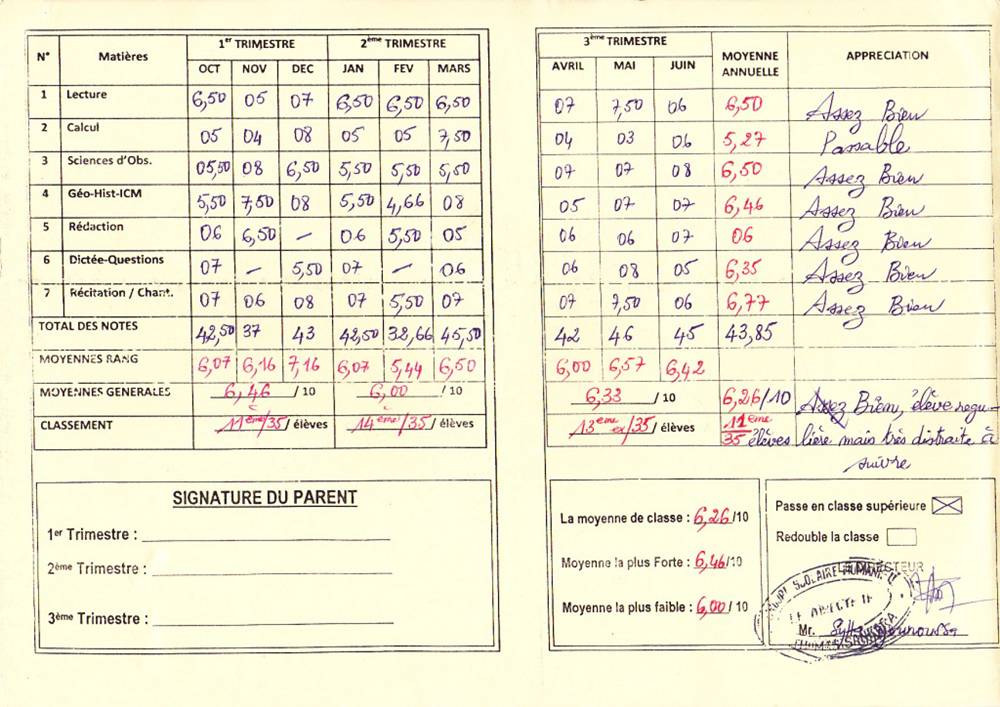 N° Matières 1er TRIMESTRE 2ème TRIMESTRE
OCT NOV DEC JAN FEV MARS
1 Lecture 6,50 05 07 6,50 6,50 6,50
2 Calcul 05 04 08 05 05 7,50
3 Sciences d'Obs. 05,50 08 6,50 5,50 5,50 5,50
4 Géo-Hist-ICM 5,50 7,50 08 5,50 4,66 08
5 Rédaction 06 6,50 – 06 5,50 05
6 Dictée-Questions 07 – 5,50 07 – 06
7 Récitation / Chant. 07 06 08 07 5,50 07
TOTAL DES NOTES 42,50 37 43 42,50 32,66 45,50
MOYENNES RANG 6,07 6,16 7,16 6,07 5,44 6,50
MOYENNES GENERALES 6,46 / 10 6,00 / 10
CLASSEMENT 11ème/35 / élèves 14ème/35 / élèves
SIGNATURE DU PARENT
1er Trimestre :
2ème Trimestre :
3ème Trimestre :
3ème TRIMESTRE MOYENNE ANNUELLE APPRECIATION
AVRIL MAI JUIN
07 7,50 06 6,50 Assez Bien
04 03 06 5,27 Passable
07 07 08 6,50 Assez Bien
05 07 07 6,46 Assez Bien
06 06 07 06 Assez Bien
06 08 05 6,35 Assez Bien
07 7,50 06 6,77 Assez Bien
42 46 45 43,85
6,00 6,57 6,42
6,33 / 10 6,26/10 Assez Bien, élève regu-
13ème /35 / élèves 11ème/35 élèves lière mais très distraite à
suivre
La moyenne de classe : 6,26/10
Moyenne la plus Forte : 6,46/10
Moyenne la plus faible : 6,00 / 10
Passe en classe supérieure
Redouble la classe
LE DIRECTEUR
Mr. Sylla